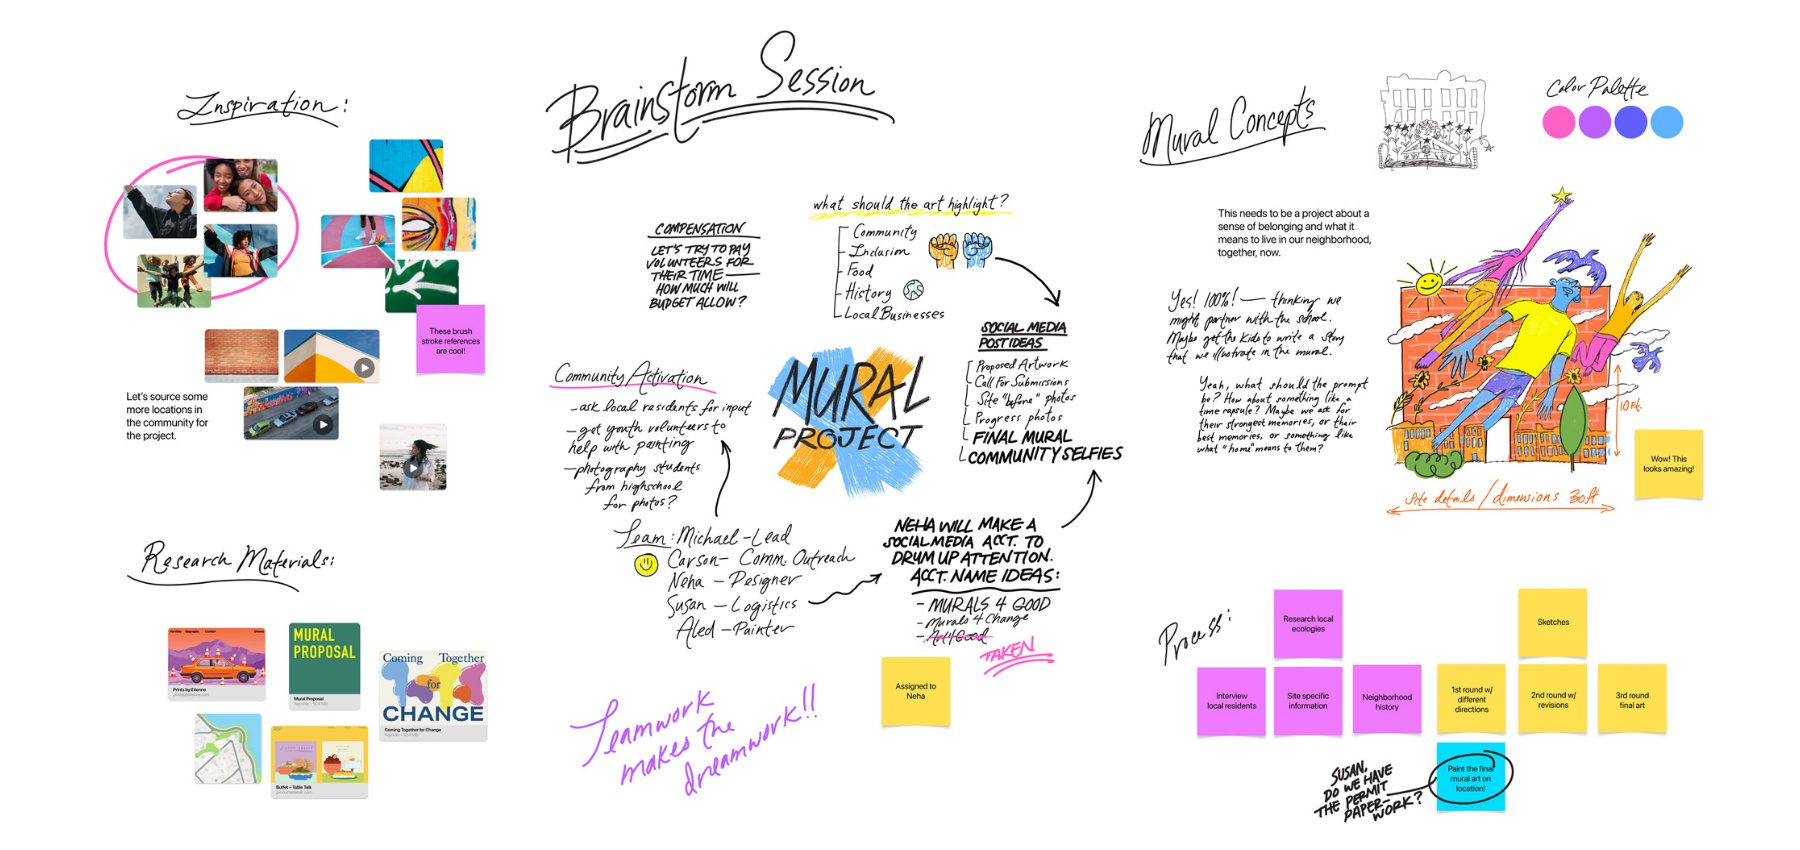 Inspiration:
These brush
stroke references
are cool!
Let's source some
more locations in
the community for
the project.
Research Materials:
Prints by Etienne
MURAL
PROPOSAL
Mural Proposal
Coming Together
for
CHANGE
Coming Together for Change
Buffet – Table Talk
Brainstorm Session
COMPENSATION
LET'S TRY TO PAY
VOLUNTEERS FOR
THEIR TIME —
HOW MUCH WILL
BUDGET ALLOW?
what should the art highlight?
Community
Inclusion
Food
History
Local Businesses
SOCIAL MEDIA
POST IDEAS
Proposed Artwork
Call For Submissions
Site "before" photos
Progress photos
FINAL MURAL
COMMUNITY SELFIES
MURAL
PROJECT
Community Activation
- ask local residents for input
- get youth volunteers to
help with painting
- photography students
from highschool
for photos?
Team: Michael - Lead
Carson - Comm. Outreach
Neha - Designer
Susan - Logistics
Aled - Painter
NEHA WILL MAKE A
SOCIAL MEDIA ACCT. TO
DRUM UP ATTENTION.
ACCT. NAME IDEAS:
- MURALS 4 GOOD
- Murals 4 Change
- Art 4 Good
TAKEN
Assigned to
Neha
Teamwork
makes the
dreamwork!!
Mural Concepts
Color Palette
This needs to be a project about a
sense of belonging and what it
means to live in our neighborhood,
together, now.
Yes! 100%! — thinking we
might partner with the school.
Maybe get the kids to write a story
that we illustrate in the mural.
Yeah, what should the prompt
be? How about something like a
time capsule? Maybe we ask for
their strongest memories, or their
best memories, or something like
what "home" means to them?
10 Ft.
Site details / dimensions 30ft
Wow! This
looks amazing!
Process:
Research local
ecologies
Sketches
Interview
local residents
Site specific
information
Neighborhood
history
1st round w/
different
directions
2nd round w/
revisions
3rd round
final art
Paint the final
mural art on
location!
SUSAN,
DO WE HAVE
THE PERMIT
PAPER-
WORK?